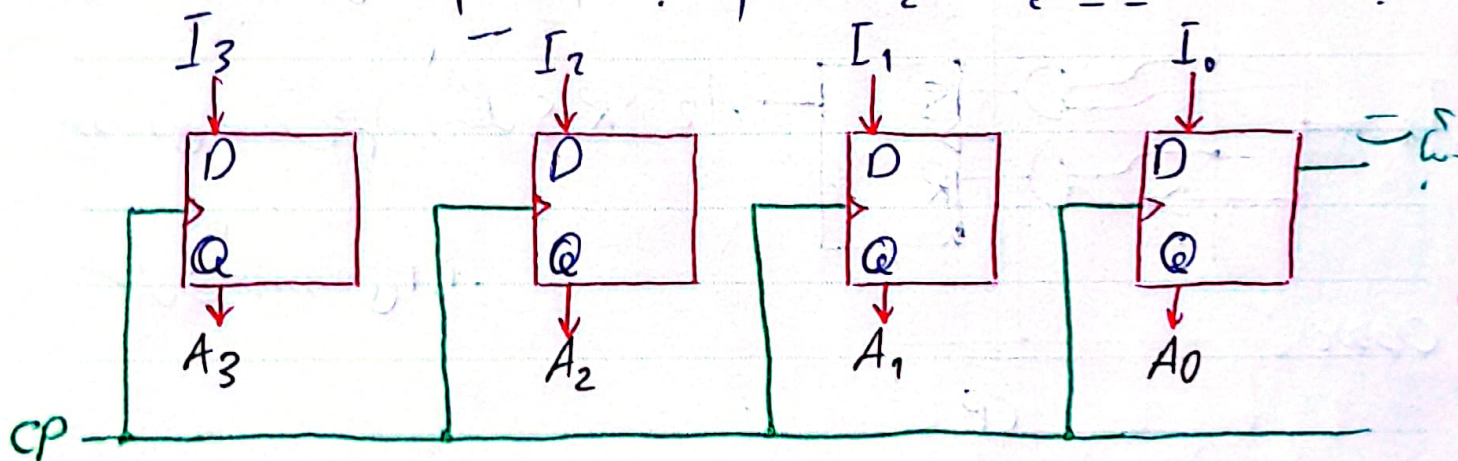 I3 I2 I1 I0
D D D D
Q Q Q Q
A3 A2 A1 A0
CP